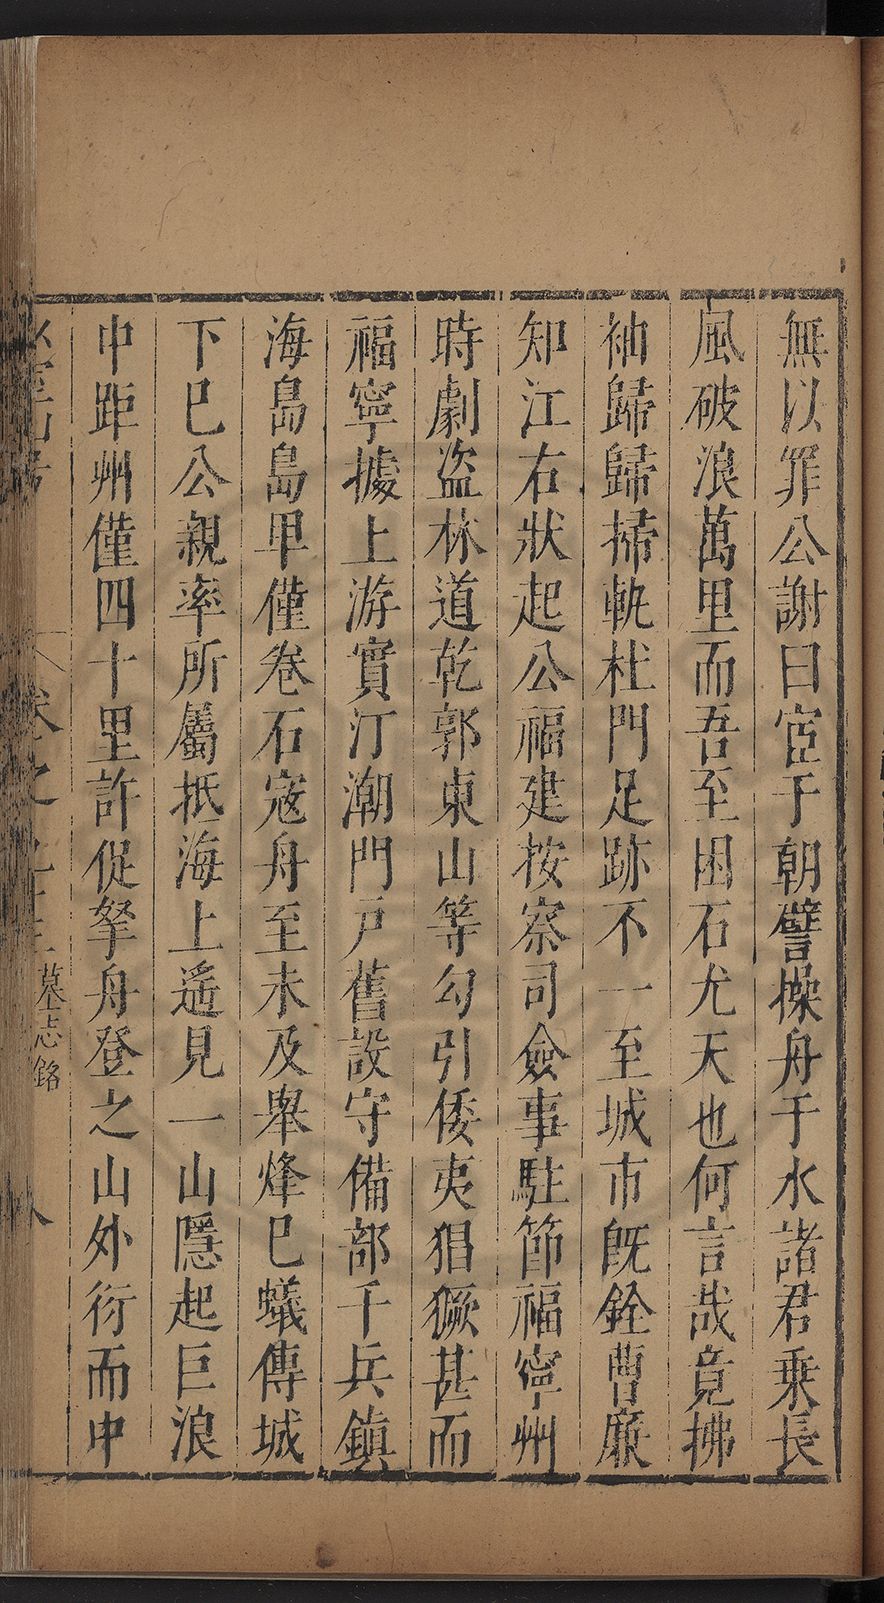 無以罪公謝曰宦于朝譬操舟于水諸君乗長
風破浪萬里而吾至困石尤天也何言哉竟拂
袖歸歸掃軌杜門足跡不一至城市旣銓曹廉
知江右狀起公福建按察司僉事駐節福寧州
時劇盜林道乾郭東山等勾引倭夷猖獗甚而
福寧據上游實汀潮門戸舊設守備部千兵鎮
海島島甲僅卷石寇舟至未及舉烽巳蟻傳城
下巳公親率所屬抵海上遙見一山隱起巨浪
中距州僅四十里許促拏舟登之山外衍而中
卷之 墓志銘 八